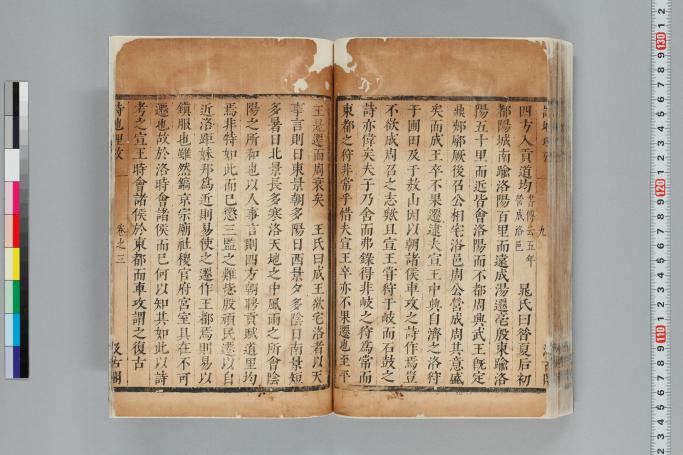 四方入貢道均書傳云五年營成洛邑 晁氏曰昝夏后初
都陽城南踰洛陽百里而遠成湯遷亳殷東踰洛
陽五十里而近皆會洛陽而不都周興武王旣定
鼎郟鄏厥後召公相宅洛邑周公營成周其意盛
矣而成王卒不果遷逮夫宣王中興自濟之洛狩
于圃田及于敖山因以朝諸侯車攻之詩作焉豈
不欲成周召之志歟且宣王甞狩于岐而石鼓之
詩亦偉矣夫子乃舍而弗錄得非岐之狩爲常而
東都之狩非常乎惜夫宣王卒亦不果遷也至平
王東遷而周衰矣 王氏曰成王欲宅洛者以天
事言則日東景朝多陽日西景夕多陰日南景短
多暑日北景長多寒洛天地之中風雨之所會陰
陽之所和也以人事言則四方朝聘貢賦道里均
焉非特如此而已懲三監之難毖殷頑民遷以自
近洛距妹邦爲近則易使之遷作王都焉則易以
鎮服也雖然鎬京宗廟社稷官府宮室具在不可
遷也故於洛時會諸侯而已何以知其如此以詩
考之宣王時會諸侯於東都而車攻謂之復古
詩地理攷 卷之三 汲古閣